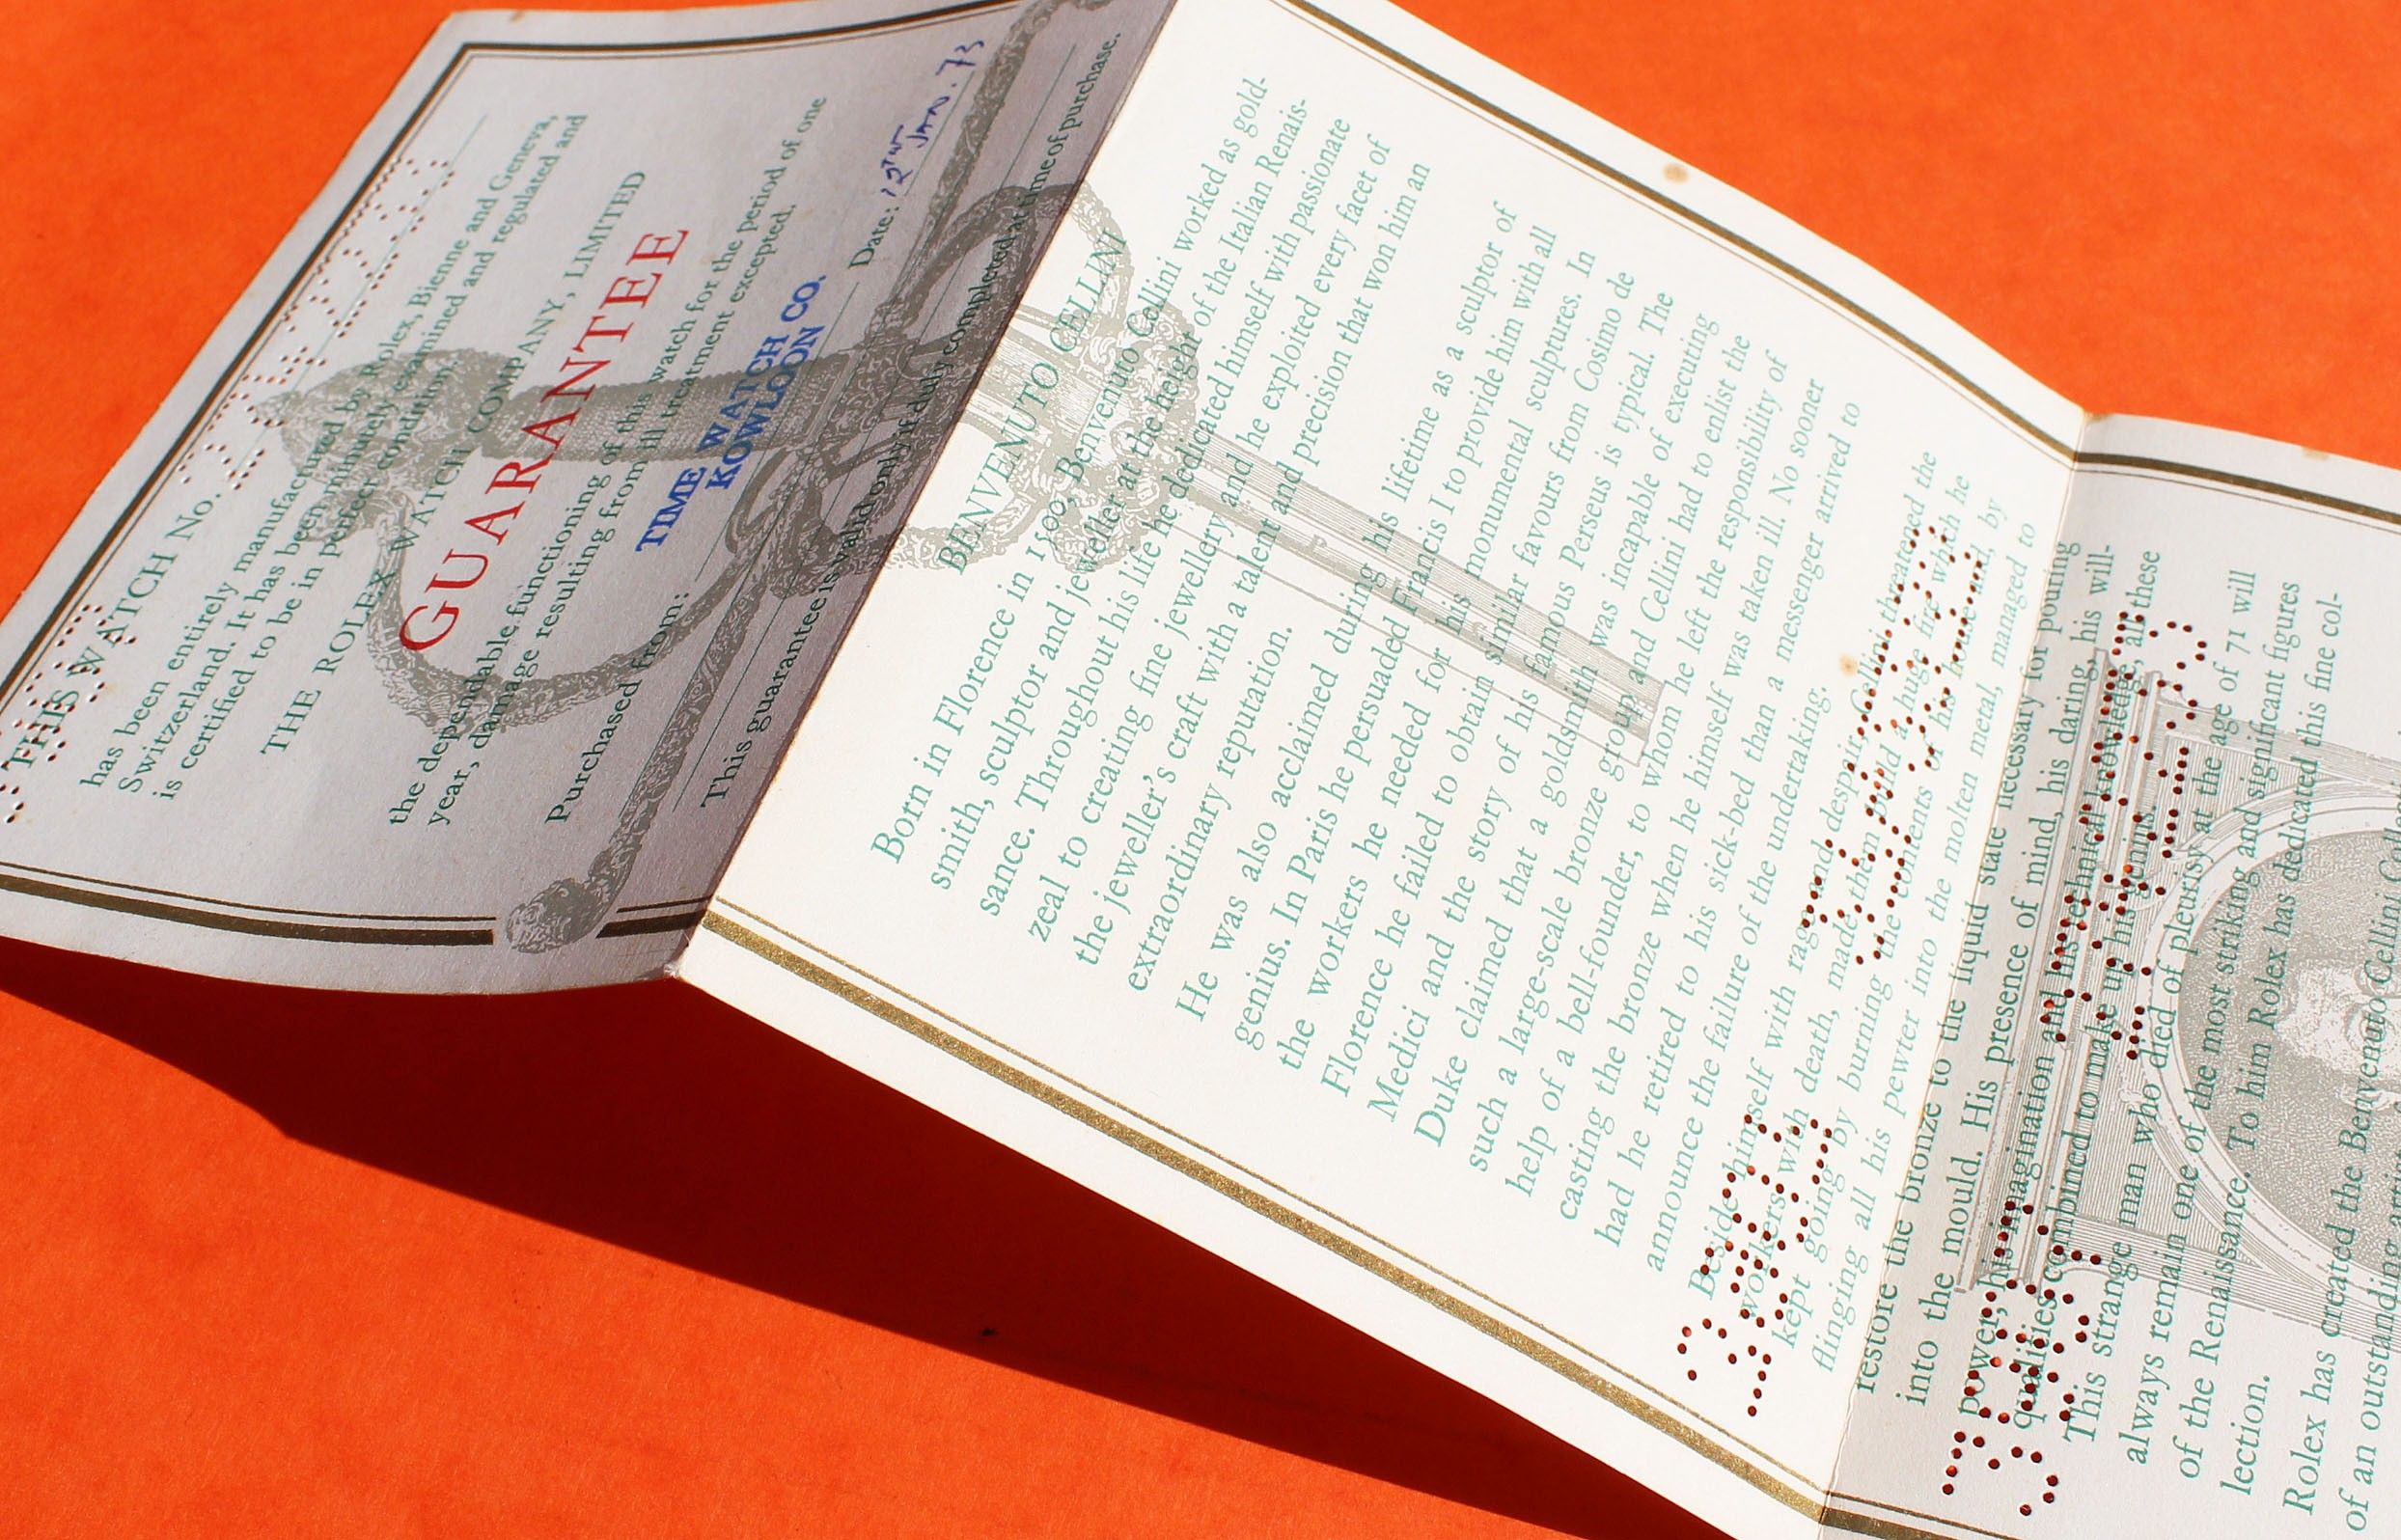 THIS WATCH No.
has been entirely manufactured by Rolex, Bienne and Geneva,
Switzerland. It has been minutely examined and regulated and
is certified to be in perfect condition.
THE ROLEX WATCH COMPANY, LIMITED
GUARANTEE
the dependable functioning of this watch for the period of one
year, damage resulting from ill treatment excepted.
Purchased from: TIME WATCH CO.
KOWLOON
Date: 12TH JAN. 73
This guarantee is valid only if duly completed at time of purchase.
BENVENUTO CELLINI
Born in Florence in 1500, Benvenuto Cellini worked as gold-
smith, sculptor and jeweller at the height of the Italian Renais-
sance. Throughout his life he dedicated himself with passionate
zeal to creating fine jewellery and he exploited every facet of
the jeweller's craft with a talent and precision that won him an
extraordinary reputation.
He was also acclaimed during his lifetime as a sculptor of
genius. In Paris he persuaded Francis I to provide him with all
the workers he needed for his monumental sculptures. In
Florence he failed to obtain similar favours from Cosimo de
Medici and the story of his famous Perseus is typical. The
Duke claimed that a goldsmith was incapable of executing
such a large-scale bronze group and Cellini had to enlist the
help of a bell-founder, to whom he left the responsibility of
casting the bronze when he himself was taken ill. No sooner
had he retired to his sick-bed than a messenger arrived to
announce the failure of the undertaking.
Beside himself with rage and despair, Cellini threatened the
workers with death, made them build a huge fire which he
kept going by burning the contents of his house and, by
flinging all his pewter into the molten metal, managed to
restore the bronze to the liquid state necessary for pouring
into the mould. His presence of mind, his daring, his will-
power, his imagination and his technical knowledge, all these
qualities combined to make up his genius.
This strange man who died of pleurisy at the age of 71 will
always remain one of the most striking and significant figures
of the Renaissance. To him Rolex has dedicated this fine col-
lection.
Rolex has created the Benvenuto Cellini
of an outstanding